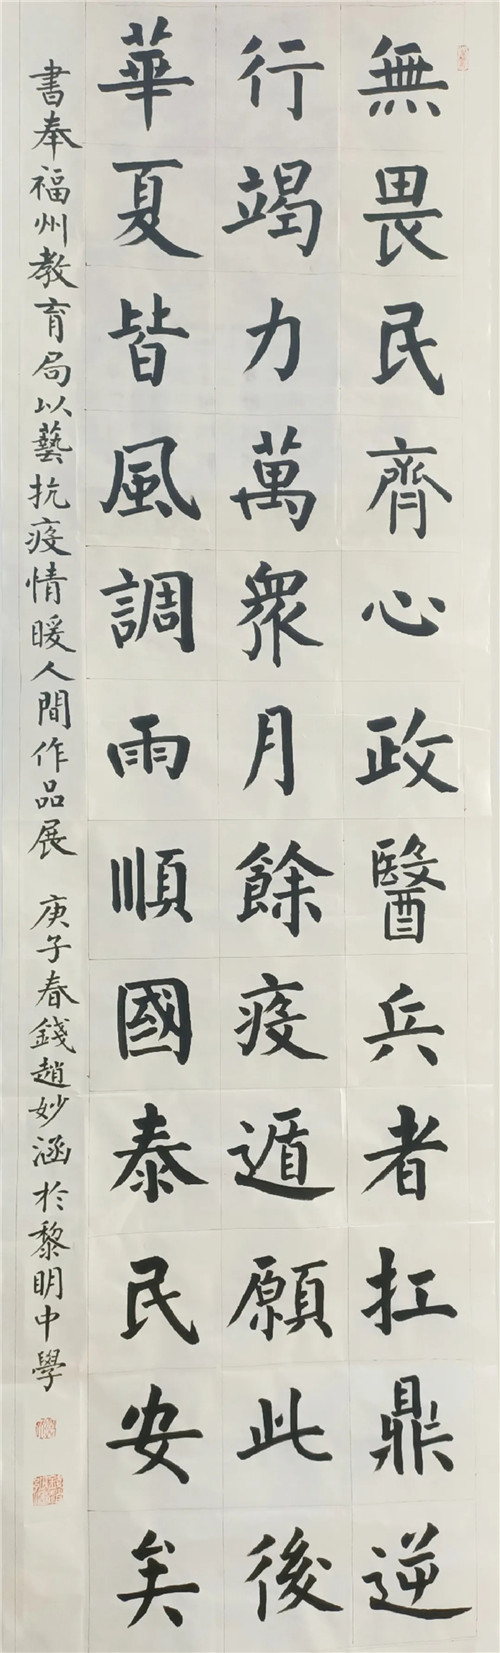 無畏民齊心政醫兵者扛鼎逆
行竭力萬衆月餘疫遁願此後
華夏皆風調雨順國泰民安矣
書奉福州教育局以藝抗疫情暖人間作品展 庚子春錢趙妙涵於黎明中學